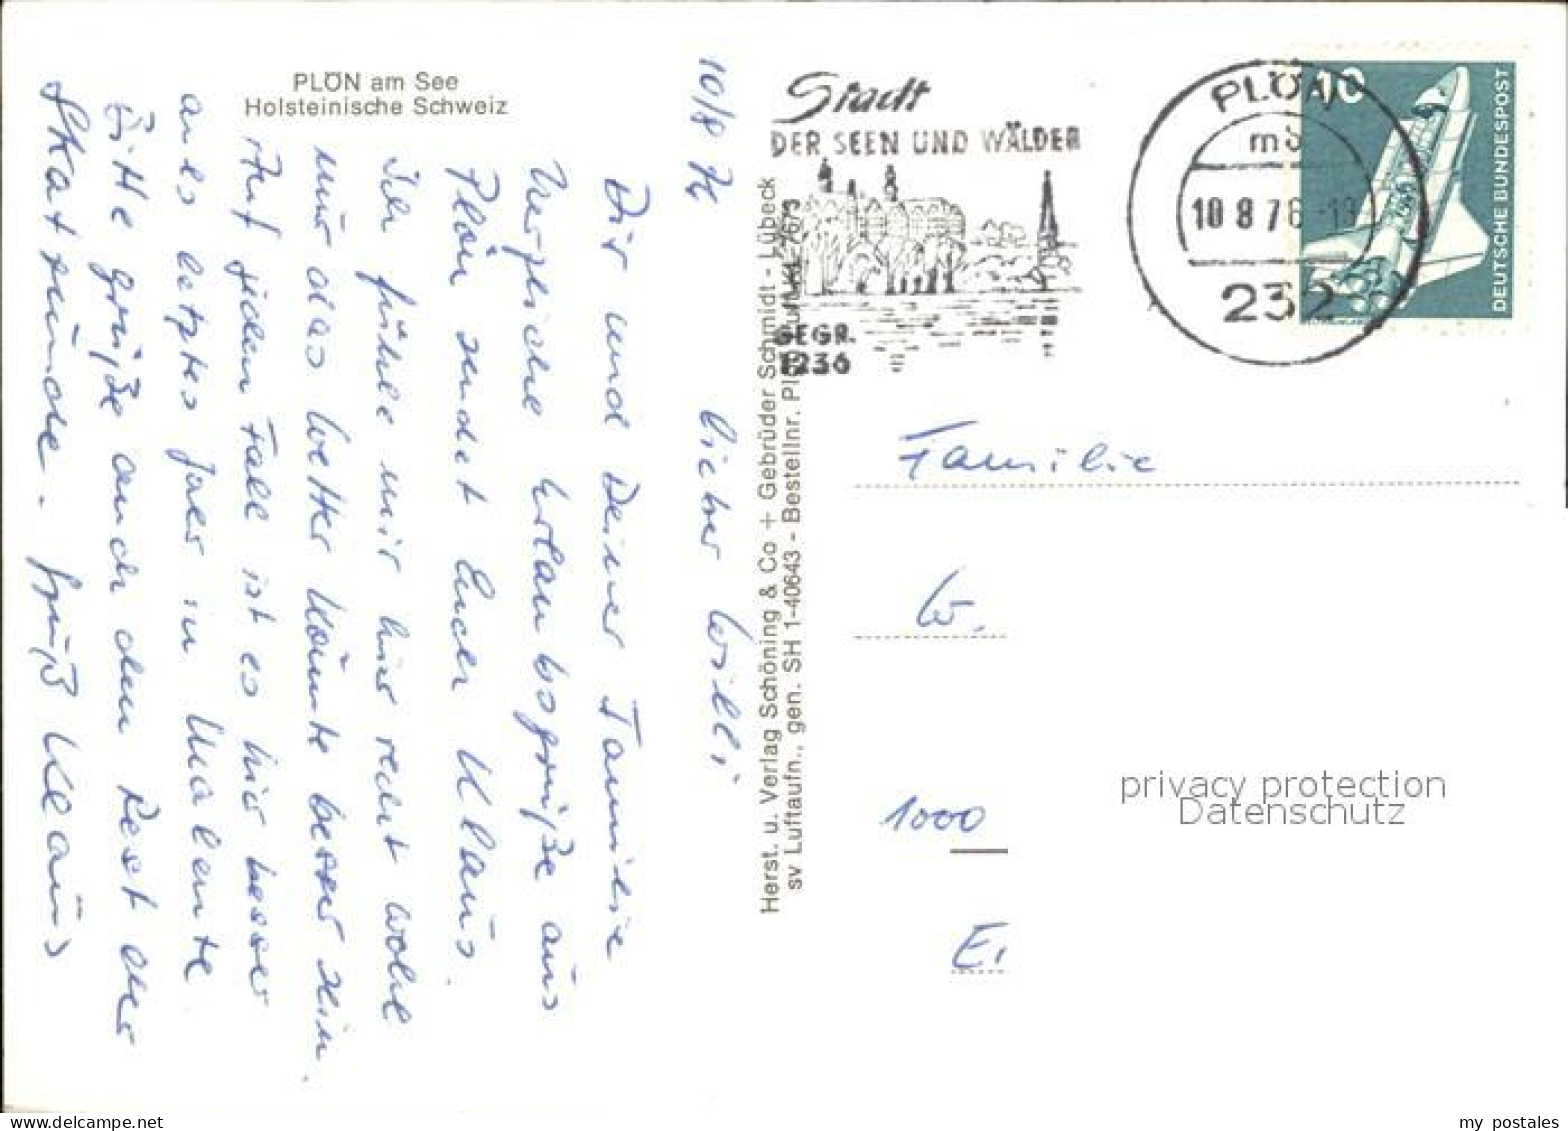 PLÖN am See
Holsteinische Schweiz
10/8 76
Lieber Willi
Dir und Deiner Familie
Herzliche Urlaubsgrüße aus
Plön sendet Euch Klaus.
Ich fühle mir hier recht wohl
nur das Wetter könnte besser sein.
Auf jeden Fall ist es hier besser
als letztes Jahr in Malente
Bitte grüße auch den Rest der
Skatrunde. Gruß Klaus
Herst. u. Verlag Schöning & Co + Gebrüder Schmidt - Lübeck
sv Luftaufn., gen. SH 1-40643 - Bestellnr.
Stadt
DER SEEN UND WÄLDER
GEGR.
1236
PLÖN
10 8 76-19
232
DEUTSCHE BUNDESPOST
Familie
W.
1000
privacy protection
Datenschutz
my postales